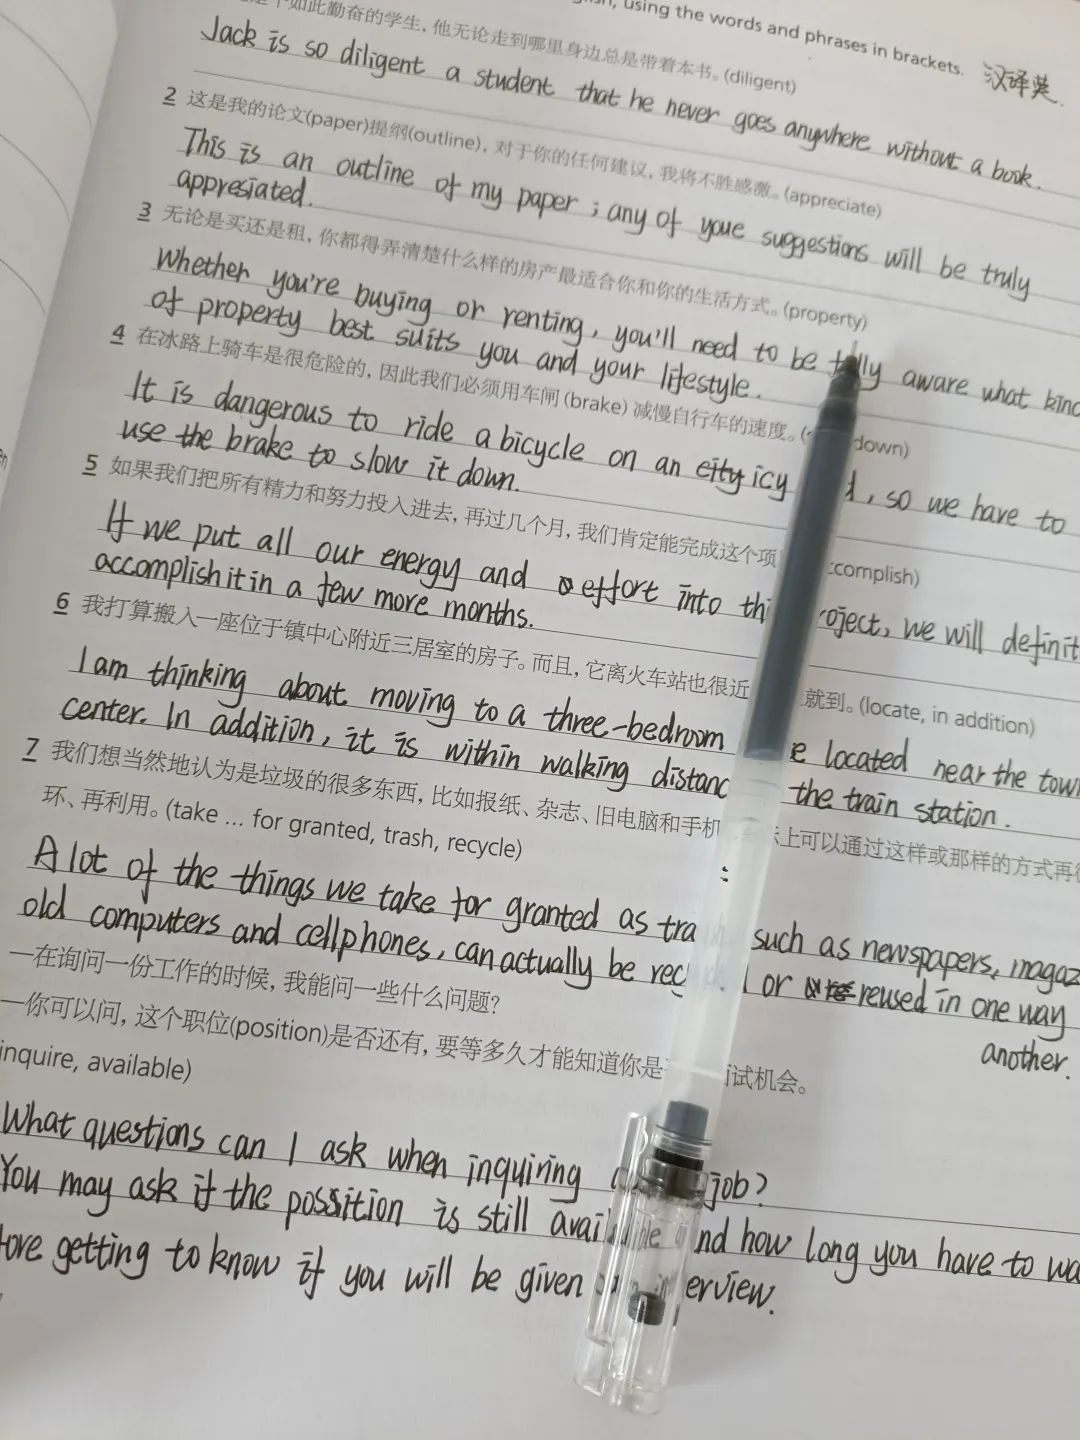 using the words and phrases in brackets. 汉译英.
如此勤奋的学生，他无论走到哪里身边总是带着本书。(diligent)
Jack is so diligent a student that he never goes anywhere without a book.
2 这是我的论文(paper)提纲(outline)，对于你的任何建议，我将不胜感激。(appreciate)
This is an outline of my paper ; any of youe suggestions will be truly
appresiated.
3 无论是买还是租，你都得弄清楚什么样的房产最适合你和你的生活方式。(property)
Whether you're buying or renting, you'll need to be aware what kind
of property best suits you and your lifestyle.
4 在冰路上骑车是很危险的，因此我们必须用车闸(brake)减慢自行车的速度。( down)
It is dangerous to ride a bicycle on an city icy , so we have to
use the brake to slow it down.
5 如果我们把所有精力和努力投入进去，再过几个月，我们肯定能完成这个项 complish)
If we put all our energy and effort into thi roject, we will definit
accomplish it in a few more months.
6 我打算搬入一座位于镇中心附近三居室的房子。而且，它离火车站也很近 就到。(locate, in addition)
I am thinking about moving to a three-bedroom e located near the tow
center. In addition, it is within walking distanc the train station.
7 我们想当然地认为是垃圾的很多东西，比如报纸、杂志、旧电脑和手机 上可以通过这样或那样的方式再循
环、再利用。(take ... for granted, trash, recycle)
A lot of the things we take for granted as tra such as newspapers, magaz
old computers and cellphones, can actually be rec or reused in one way
another.
—在询问一份工作的时候，我能问一些什么问题？
—你可以问，这个职位(position)是否还有，要等多久才能知道你是 面试机会。
inquire, available)
What questions can I ask when inquiring job?
You may ask if the possition is still available and how long you have to wa
fore getting to know if you will be given erview.